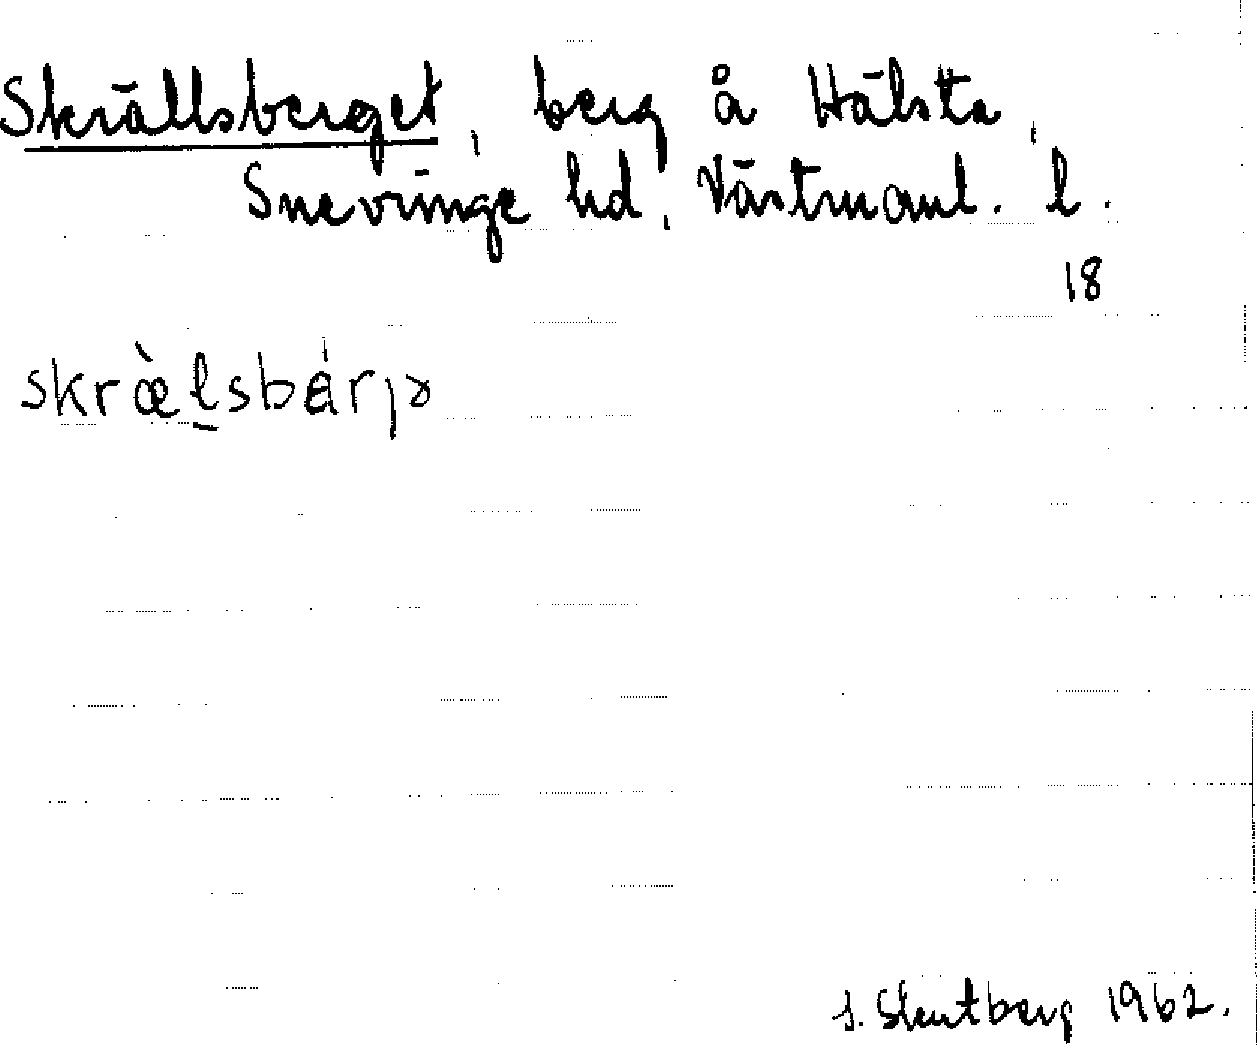 Skrällsberget, berg å Hälsta,
Snevringe hd, Västmanl. l.
18
skræ̀l̠sbárjə
1962.